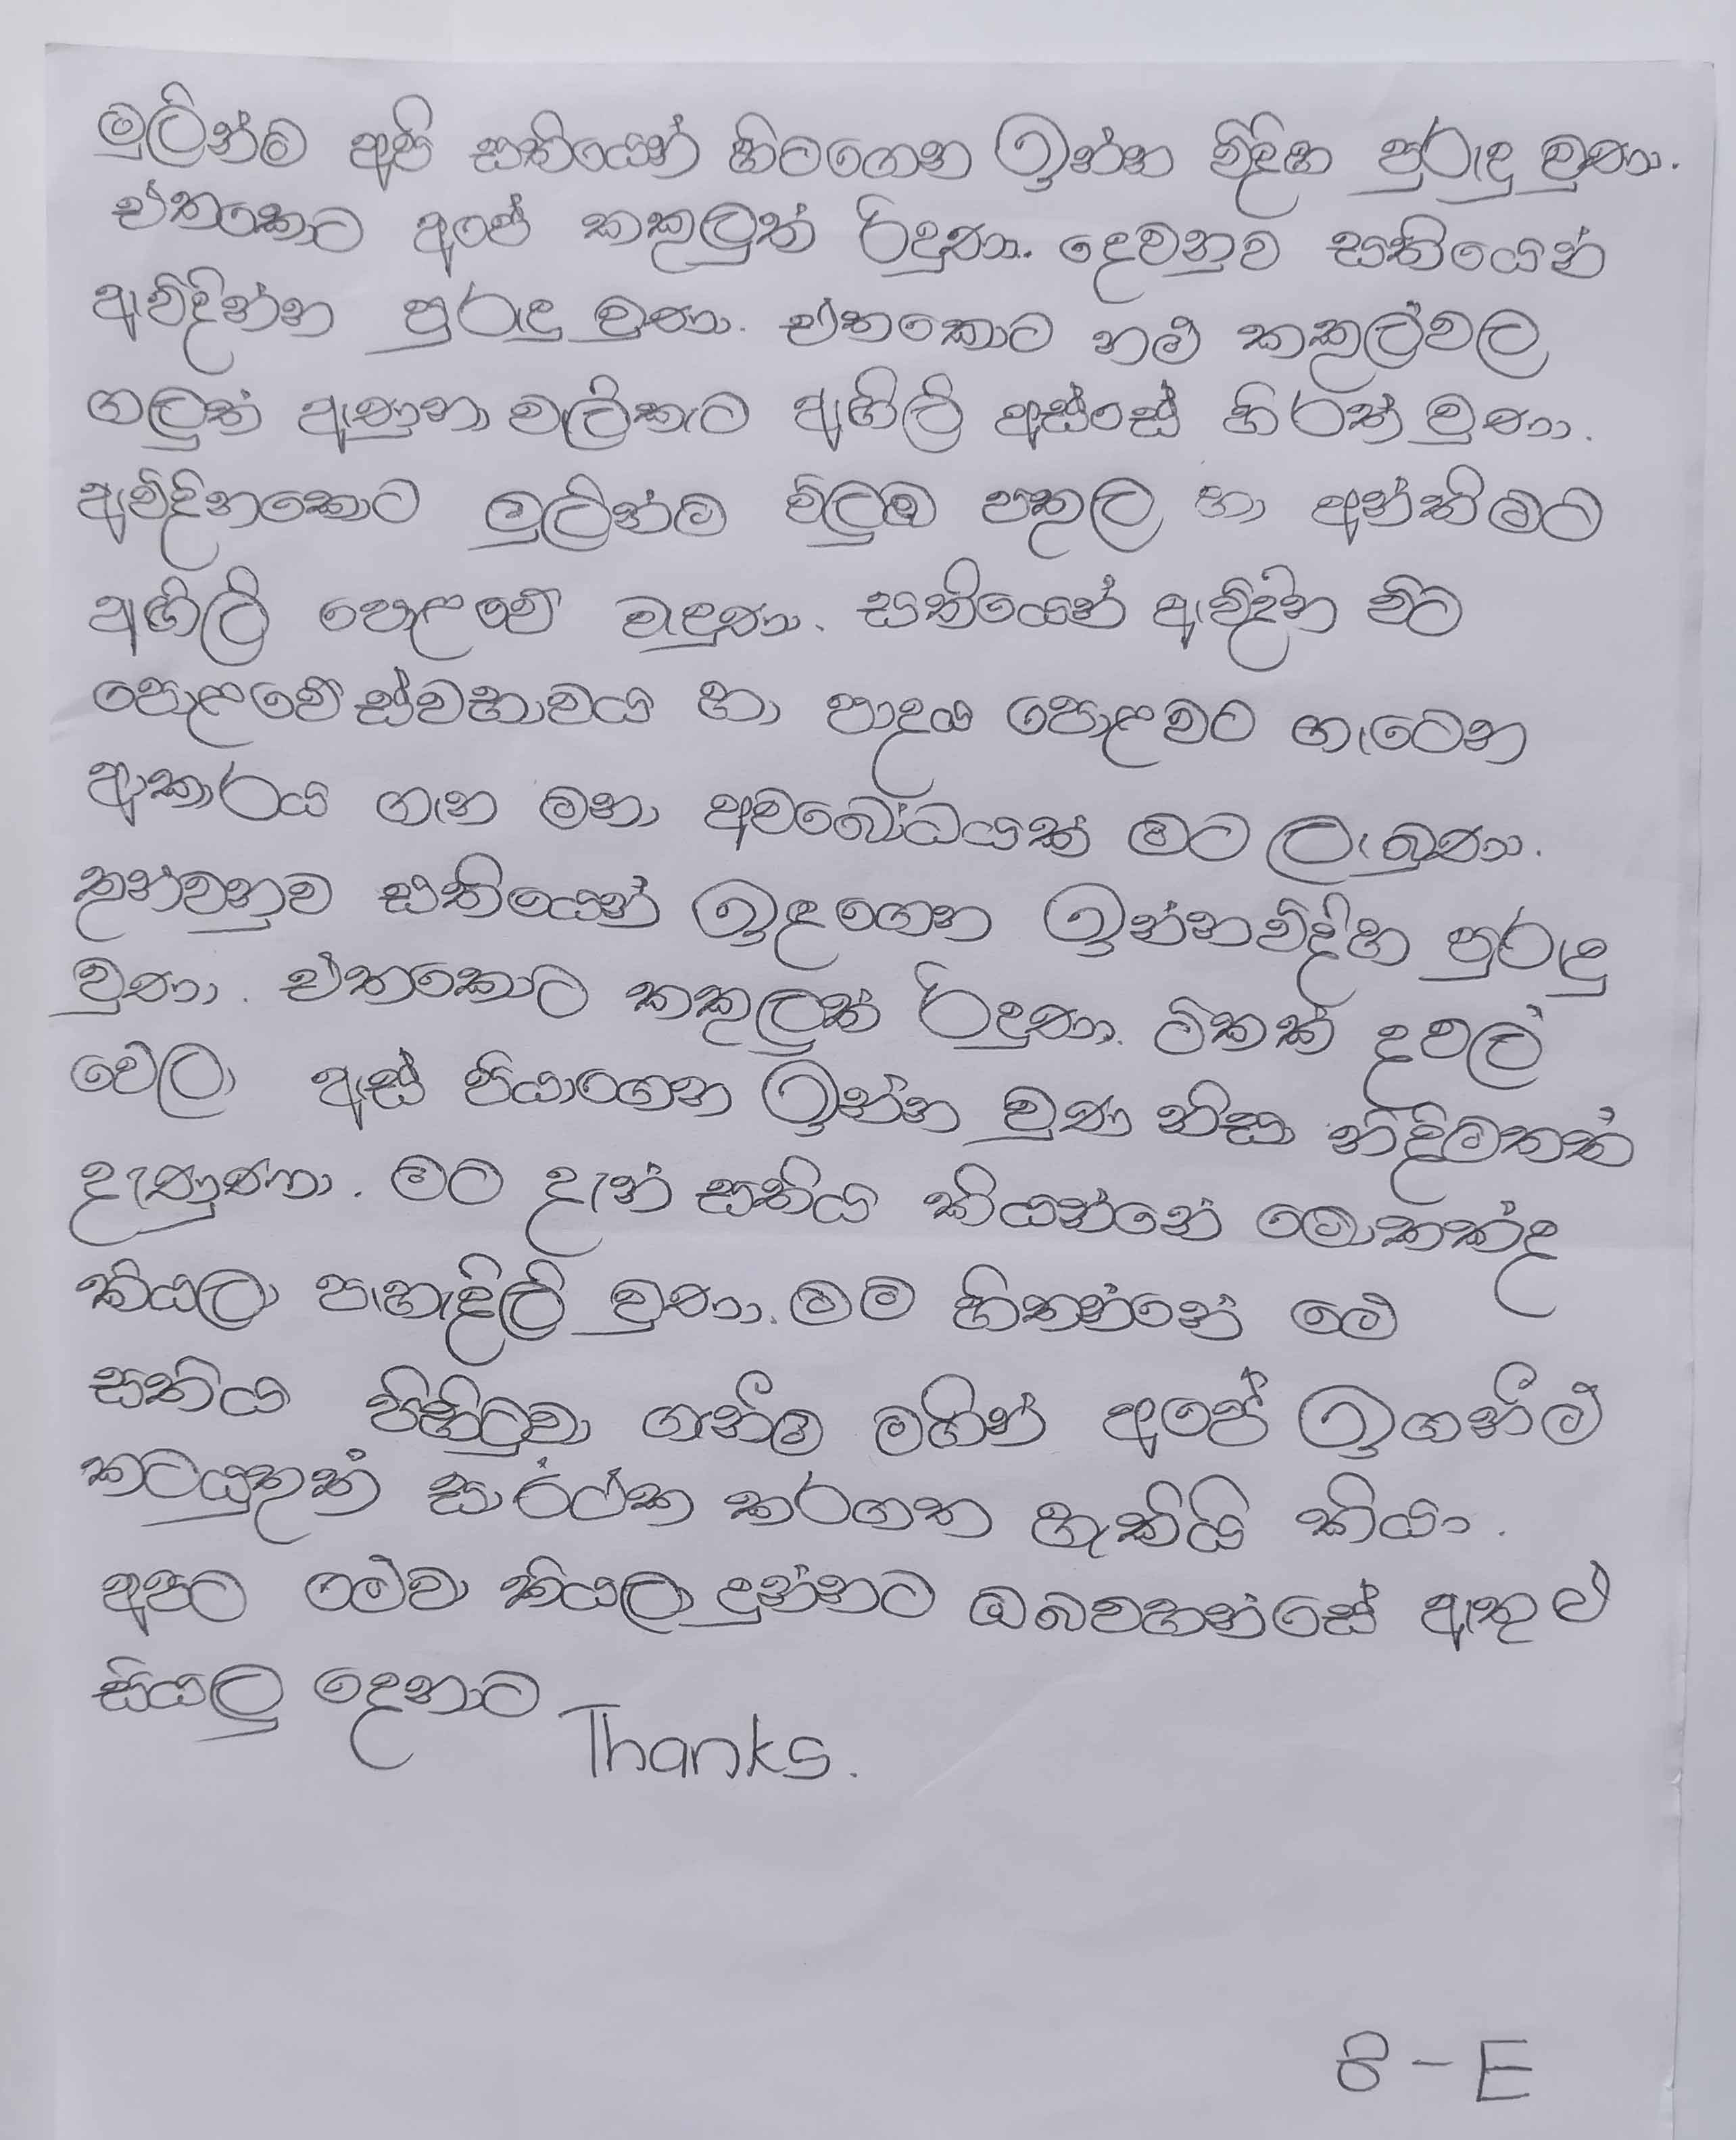 මුලින්ම අපි සතියෙන් හිටගෙන ඉන්න විදිහ පුරුදු වුණා.
එතකොට අපේ කකුලුත් රිදුණා. දෙවනුව සතියෙන්
ඇවිදින්න පුරුදු වුණා. එතකොට නම් කකුල්වල
ගලුත් ඇණුනා වැලිකැට ඇඟිලි අස්සේ හිරත් වුණා.
ඇවිදිනකොට මුලින්ම විලුඹ පතුල හා අන්තිමට
අඟිලි පොළවේ වැදුණා. සතියෙන් ඇවිදින විට
පොළවේ ස්වභාවය හා පාදය පොළවට ගැටෙන
ආකාරය ගැන මනා අවබෝධයක් මට ලැබුණා.
තුන්වනුව සතියෙන් ඉඳගෙන ඉන්නවිදිහ පුරුදු
වුණා. එතකොට කකුලුත් රිදුණා. ටිකක් දවල්
වෙලා ඇස් පියාගෙන ඉන්න වුණ නිසා නිදිමතත්
දැණුණා. මට දැන් සතිය කියන්නේ මොකක්ද
කියලා පැහැදිලි වුණා. මම හිතන්නේ මේ
සතිය පිහිටුවා ගැනීම මගින් අපේ ඉගනීම්
කටයුතුත් සාර්ථක කරගත හැකියි කියා.
අපට මේවා කියලා දුන්නට ඔබවහන්සේ ඇතුළු
සියලු දෙනාට Thanks.
8 - E